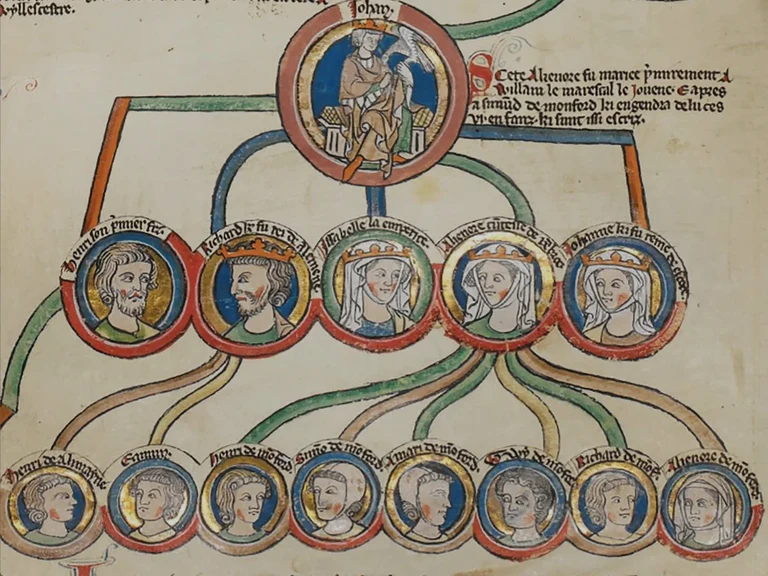 Wyllescestre.
Johan.
Scete Alienore fu mariee p'mirement A
Willam le mareschal le Jouene. E apres
a Simūd de monford ki engendra de lui ces
vj. enfanz. ki sunt issi escriz.
Henri son p'mier fiz.
Richard ke fu rei de Alemeine
Issabelle la emperice.
Alienore
Johanne ki fu reine de escoce.
Henri de Almayne
Henri de mōford.
Simō de mōford
Amari de mōford.
Gwy de mōford
Richard de mōf.
Alienore de mōford